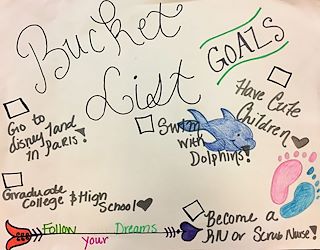 Bucket
List
GOALS
Go to
disney land
In PARIS!
Swim
With
Dolphins!
Have Cute
Children
Graduate
College & High
School
Become a
RN or Scrub Nurse!
Follow
your
Dreams